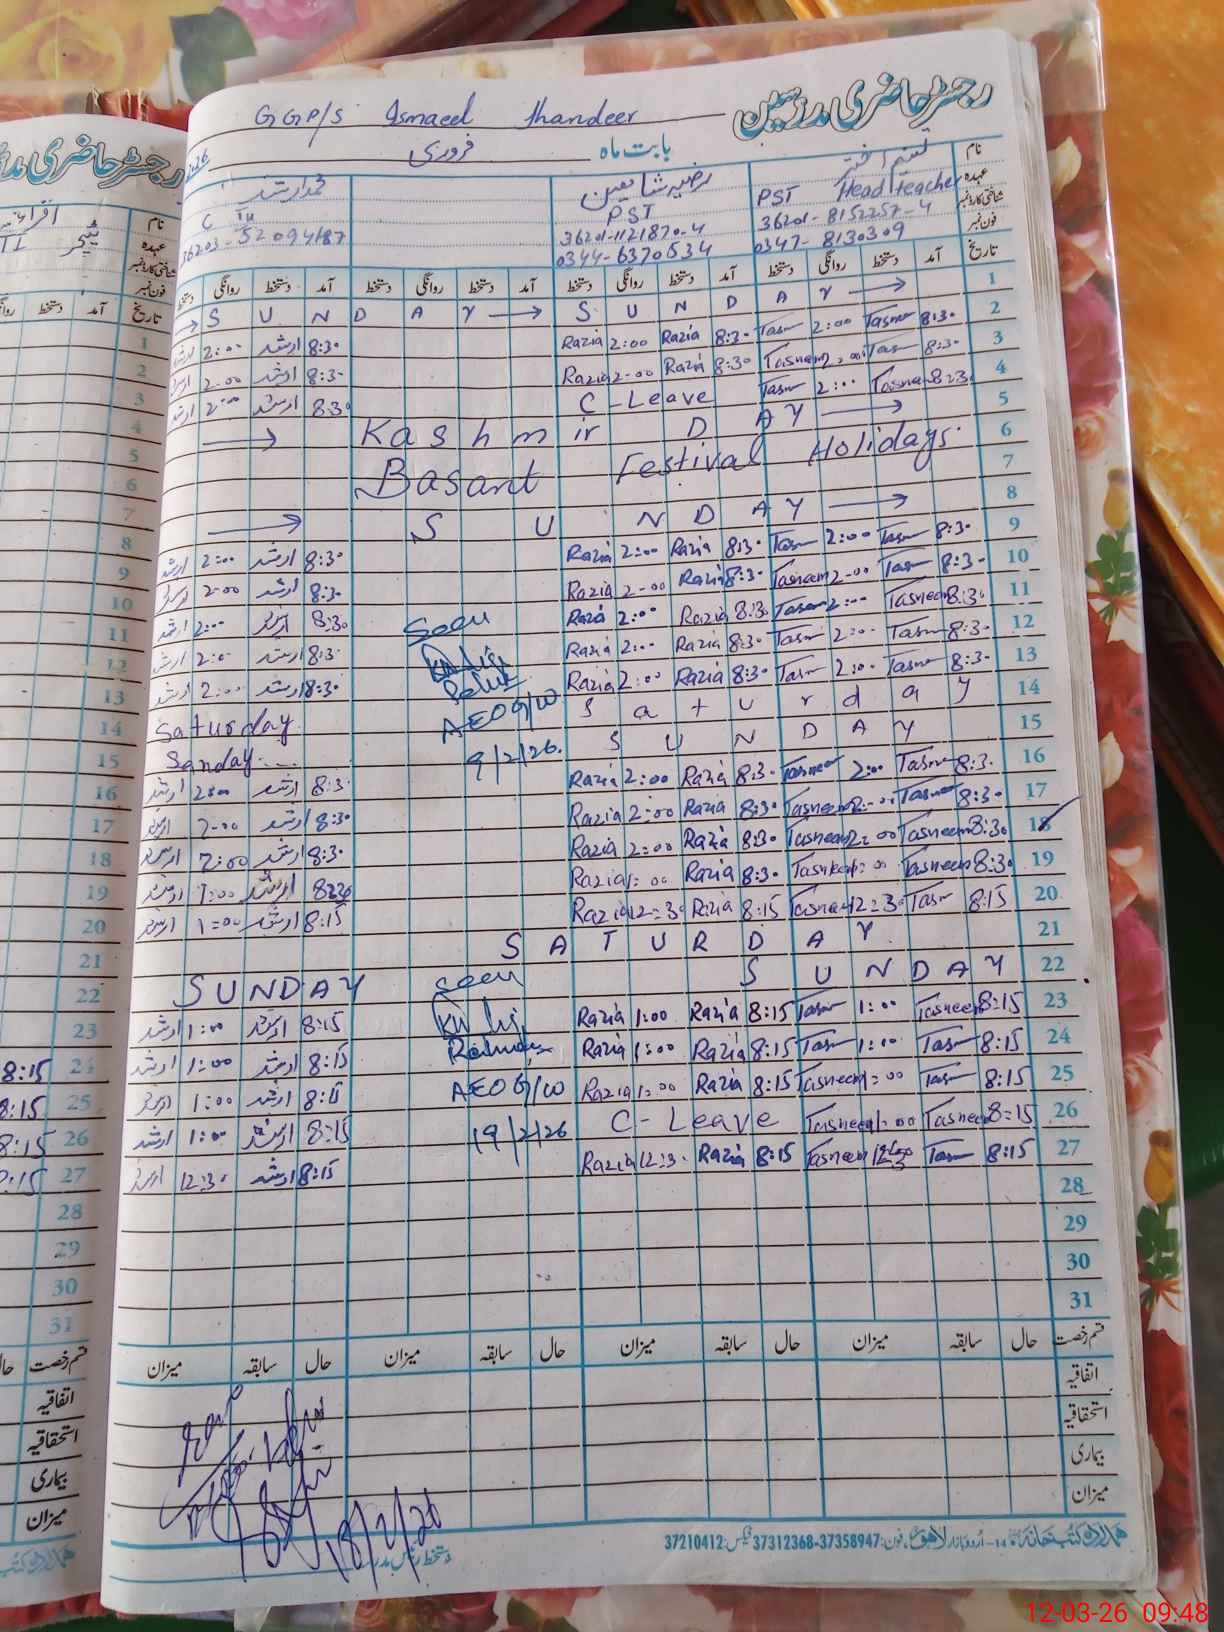 رجسٹر حاضری مدرسین
GGP/S Ismaeel Jhandeer
بابت ماہ فروری
نام تسنیم اختر رضیہ شاہین محمد ارشد
عہدہ PST Head teacher PST
شناختی کارڈ نمبر 36201-8152257-4 36201-1121870-4
فون نمبر 0347-8130309 0344-6370534
تاریخ آمد دستخط روانگی دستخط آمد دستخط روانگی دستخط آمد دستخط روانگی دستخط آمد دستخط روانگی دستخط
1 SUNDAY SUNDAY
2 8:30 Tasn 2:00 Tasn 8:30 Razia 2:00 Razia 8:30 ارشد 2:00 ارشد
3 8:30 Tasn 2:00 Tasneem 8:30 Razia 2-00 Razia 8:30 ارشد 2:00 ارشد
4 8:30 Tasneem 2:00 Tasn C-Leave 8:30 ارشد 2:00 ارشد
5 Kashmir DAY
6 Basant Festival Holidays
7
8 SUNDAY
9 8:30 Tasn 2:00 Tasn 8:30 Razia 2:00 Razia 8:30 ارشد 2:00 ارشد
10 8:30 Tasn 2-00 Tasneem 8:30 Razia 2-00 Razia 8:30 ارشد 2-00 ارشد
11 8:30 Tasneem 2:00 Tasneem 8:30 Razia 2:00 Razia 8:30 ارشد 2:00 ارشد
Seen
12 8:30 Tasn 2:00 Tasn 8:30 Razia 2:00 Razia 8:30 ارشد 2:00 ارشد
13 8:30 Tasn 2:00 Tasn 8:30 Razia 2:00 Razia 8:30 ارشد 2:00 ارشد
14 Saturday Saturday
AEO G/W
15 SUNDAY Sunday
9/2/26
16 8:30 Tasn 2:00 Tasneem 8:30 Razia 2:00 Razia 8:30 ارشد 2:00 ارشد
17 8:30 Tasn 2:00 Tasneem 8:30 Razia 2:00 Razia 8:30 ارشد 2-00 ارشد
18 8:30 Tasneem 2:00 Tasneem 8:30 Razia 2:00 Razia 8:30 ارشد 2:00 ارشد
19 8:30 Tasneem 1:00 Tasneem 8:30 Razia 1:00 Razia ارشد 1:00 ارشد
20 8:15 Tasn 12:30 Tasneem 8:15 Razia 12:30 Razia 8:15 ارشد 1:00 ارشد
21 SATURDAY
22 SUNDAY SUNDAY
Seen
23 8:15 Tasneem 1:00 Tasn 8:15 Razia 1:00 Razia 8:15 ارشد 1:00 ارشد
24 8:15 Tasn 1:00 Tasn 8:15 Razia 1:00 Razia 8:15 ارشد 1:00 ارشد
25 8:15 Tasn 1:00 Tasneem 8:15 Razia 1:00 Razia 8:15 ارشد 1:00 ارشد
AEO G/W
26 8:15 Tasneem 1:00 Tasneem C-Leave 8:15 ارشد 1:00 ارشد
19/2/26
27 8:15 Tasn Tasneem 8:15 Razia 12:30 Razia 8:15 ارشد 12:30 ارشد
28
29
30
31
قسم رخصت حال سابقہ میزان حال سابقہ میزان حال سابقہ میزان حال سابقہ میزان
اتفاقیہ
استحقاقیہ
بیماری
میزان
18/2/26
ہمدرد کتب خانہ 14-اردو بازار لاہور، فون: 37358947-37312368 فیکس: 37210412
رجسٹر حاضری
نام
عہدہ ٹیچر
شناختی کارڈ نمبر
فون نمبر
تاریخ آمد دستخط
1
2
3
4
5
6
7
8
9
10
11
12
13
14
15
16
17
18
19
20
21
22
23
24 8:15
25 8:15
26 8:15
27 8:15
28
29
30
31
قسم رخصت حال
اتفاقیہ
استحقاقیہ
بیماری
میزان
12-03-26 09:48